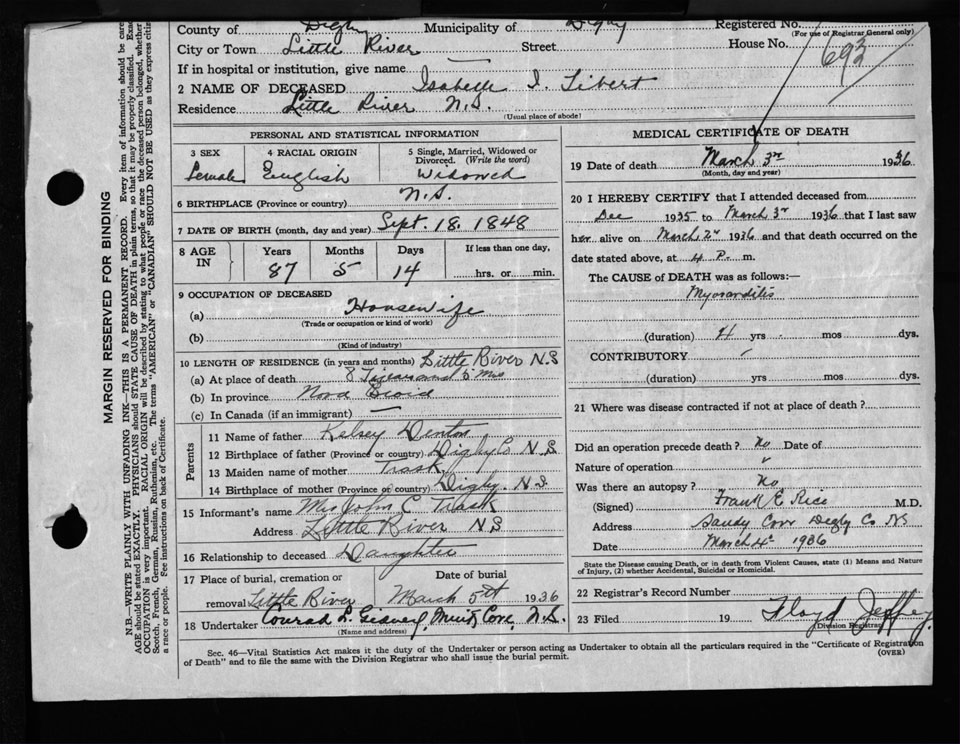 County of Digby Municipality of Digby Registered No.
(For use of Registrar General only)
City or Town Little River Street House No.
693
If in hospital or institution, give name —
2 NAME OF DECEASED Isabelle I. Tibert
Residence Little River N.S.
(Usual place of abode)
PERSONAL AND STATISTICAL INFORMATION
3 SEX 4 RACIAL ORIGIN 5 Single, Married, Widowed or Divorced. (Write the word)
Female English Widowed
6 BIRTHPLACE (Province or country) N.S.
7 DATE OF BIRTH (month, day and year) Sept. 18. 1848
8 AGE IN Years Months Days If less than one day,
87 5 14 hrs. or min.
9 OCCUPATION OF DECEASED
(a) Housewife
(Trade or occupation or kind of work)
(b)
(Kind of industry)
10 LENGTH OF RESIDENCE (in years and months) Little River N.S
(a) At place of death
(b) In province Nova
(c) In Canada (if an immigrant) —
Parents
11 Name of father Kelsey Denton
12 Birthplace of father (Province or country) Digby Co N.S
13 Maiden name of mother Trask
14 Birthplace of mother (Province or country) Digby. N.S.
15 Informant's name Mrs John C Trask
Address Little River N.S
16 Relationship to deceased Daughter
17 Place of burial, cremation or removal Little River
Date of burial
March 5th 1936
18 Undertaker Conrad L. Gidney, Mink Cove, N.S.
(Name and address)
MEDICAL CERTIFICATE OF DEATH
19 Date of death March 3rd 1936
(Month, day and year)
20 I HEREBY CERTIFY that I attended deceased from
Dec 1935 to March 3rd 1936 that I last saw
her alive on March 2nd 1936 and that death occurred on the
date stated above, at 4 P. m.
The CAUSE of DEATH was as follows:—
Myocarditis
(duration) 4 yrs mos dys.
CONTRIBUTORY
(duration) yrs mos dys.
21 Where was disease contracted if not at place of death?
Did an operation precede death? No Date of
Nature of operation
Was there an autopsy? No
(Signed) Frank E Rice M.D.
Address Sandy Cove Digby Co NS
Date March 4th 1936
State the Disease causing Death, or in death from Violent Causes, state (1) Means and Nature of Injury, (2) whether Accidental, Suicidal or Homicidal.
22 Registrar's Record Number
23 Filed 19 Floyd Jeffrey
Division Registrar
Sec. 46—Vital Statistics Act makes it the duty of the Undertaker or person acting as Undertaker to obtain all the particulars required in the "Certificate of Registration
of Death" and to file the same with the Division Registrar who shall issue the burial permit.
(OVER)
MARGIN RESERVED FOR BINDING
N.B.—WRITE PLAINLY WITH UNFADING INK—THIS IS A PERMANENT RECORD. Every item of information should be care
AGE should be stated EXACTLY. PHYSICIANS should STATE CAUSE OF DEATH in plain terms, so that it may be properly classified. Exac
OCCUPATION is very important. RACIAL ORIGIN will be described by stating to what people or race the deceased person belonged, whether
Scotch, French, German, Russian, Ruthenian, etc. The terms "AMERICAN" or "CANADIAN" SHOULD NOT BE USED as they express citiz
a race or people. See instructions on back of Certificate.